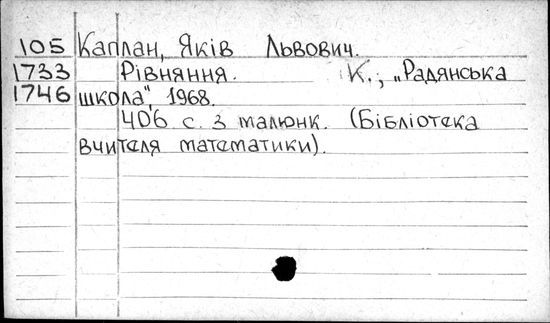 105 Каплан, Яків Львович.
1733 Рівняння. К., „Радянська
1746 школа", 1968.
406 с. з малюнк. (Бібліотека
вчителя математики).